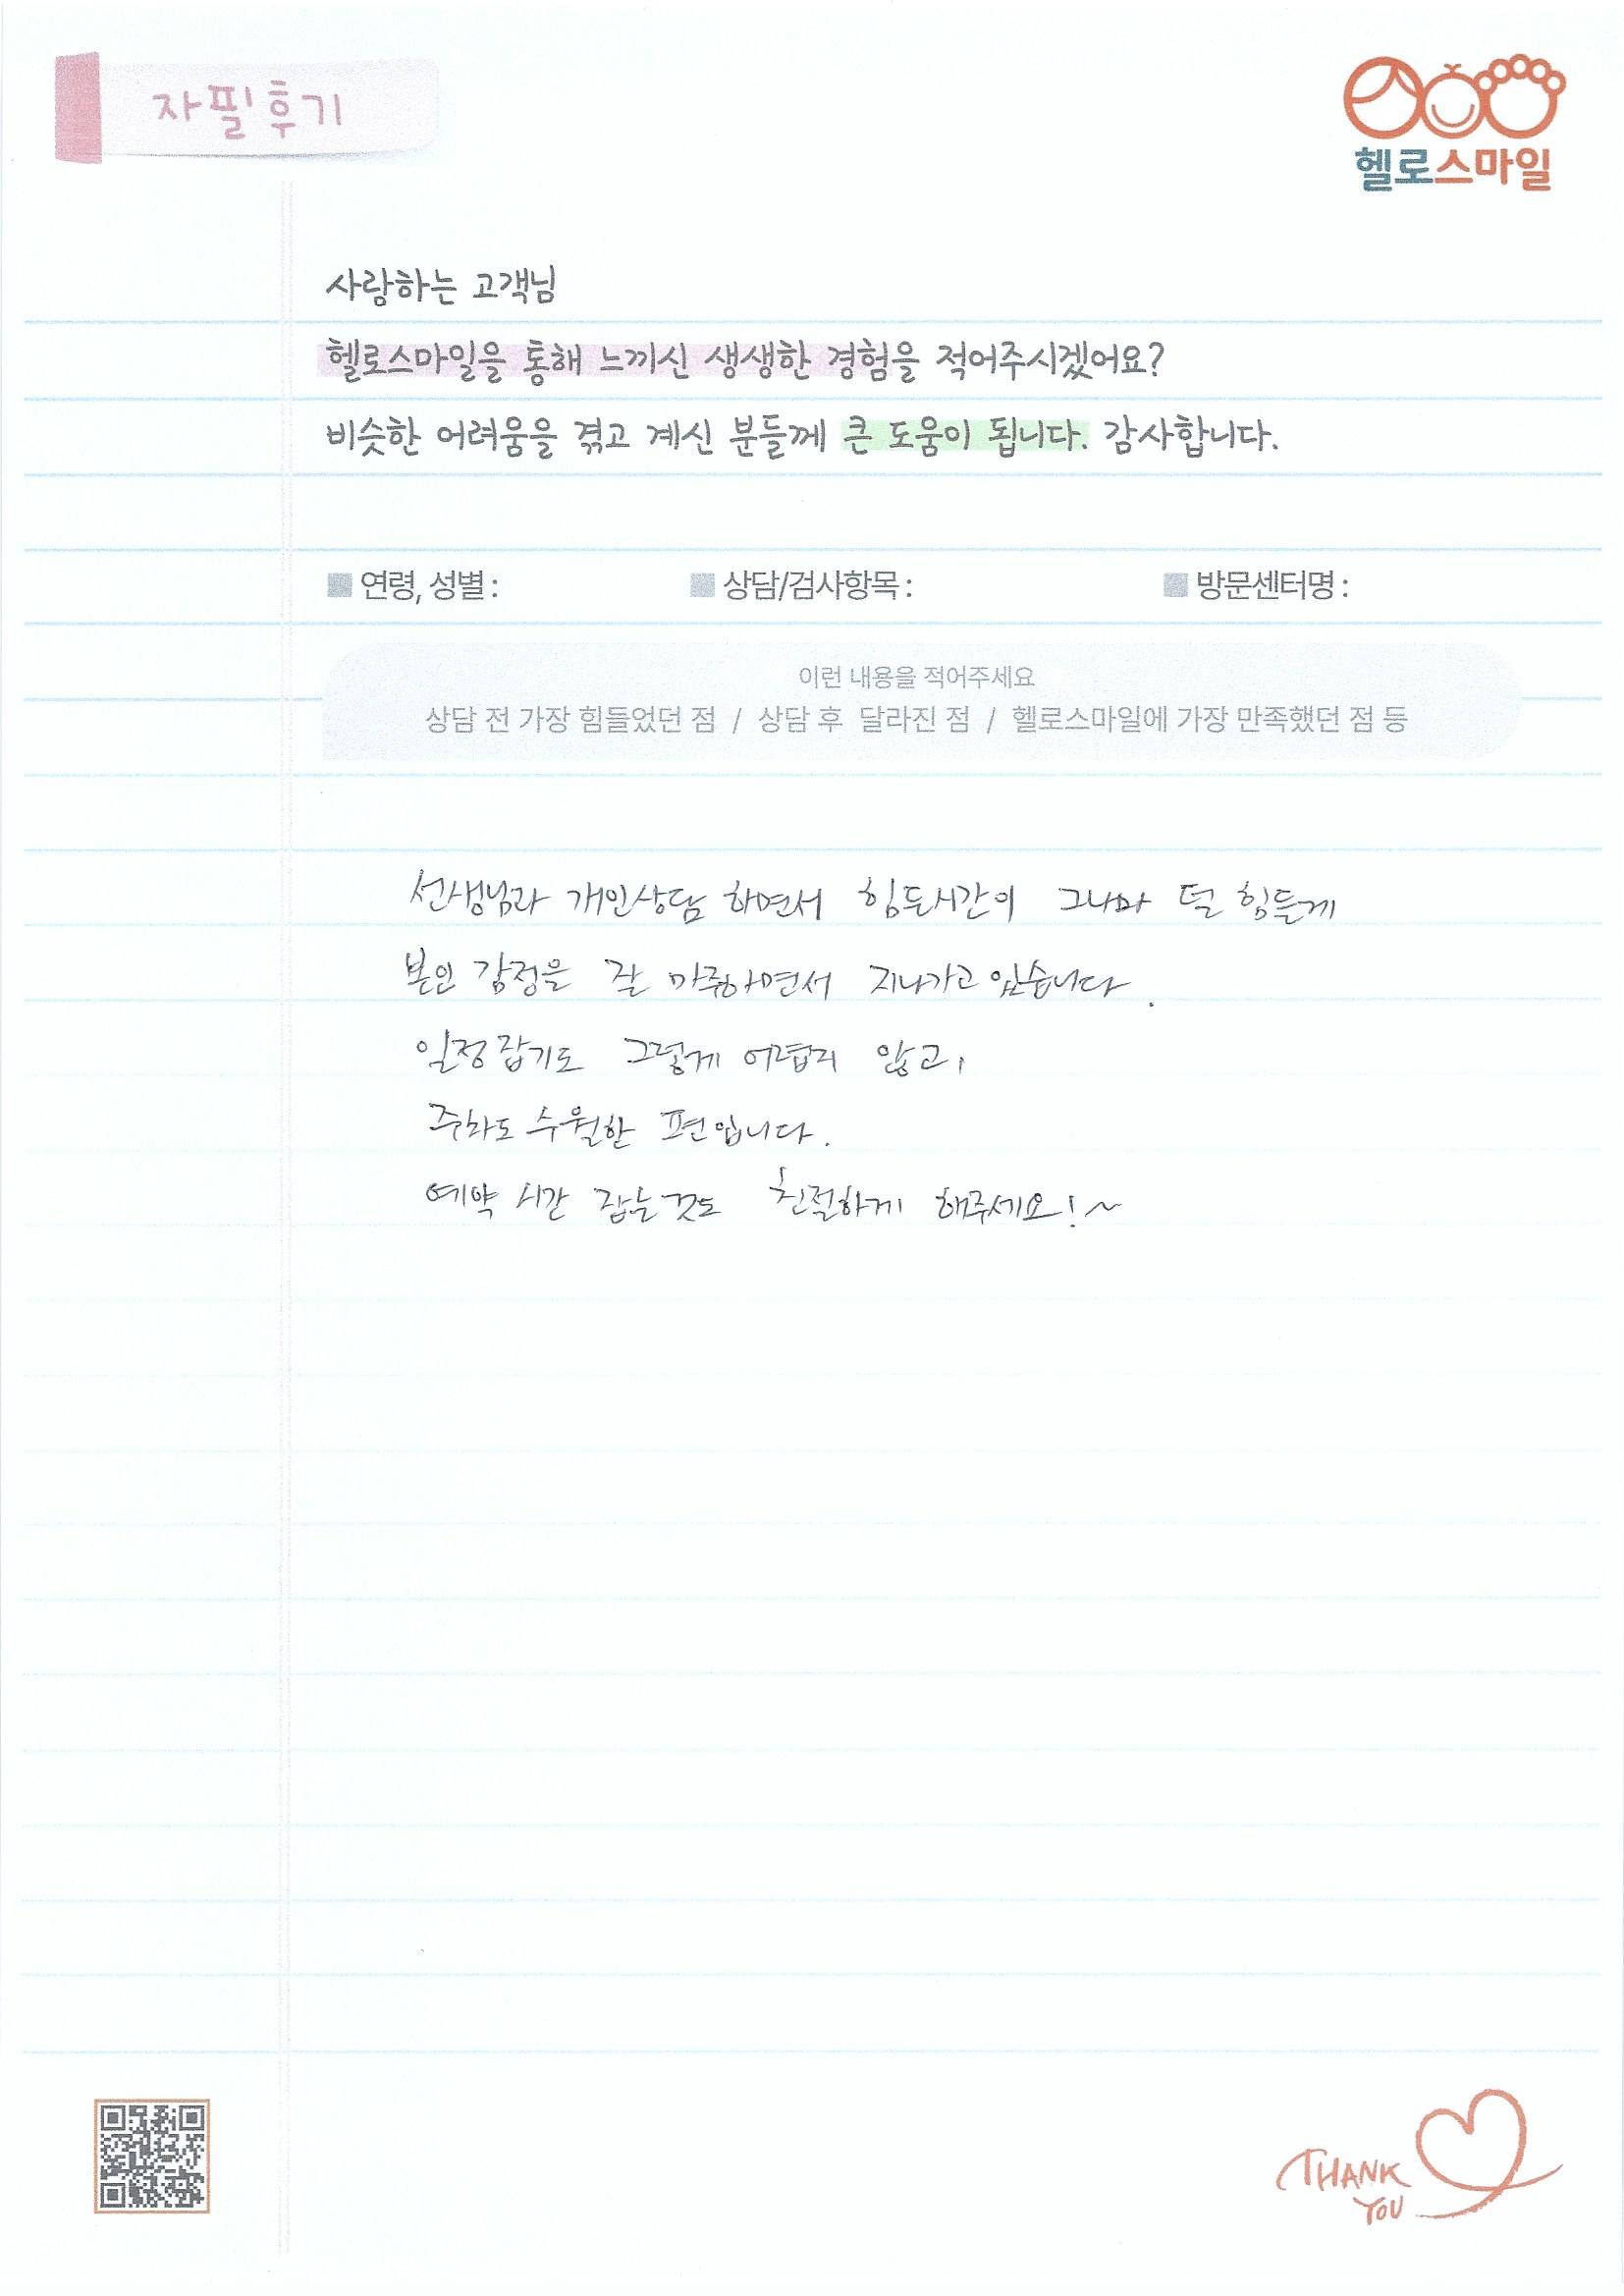 자필후기
헬로스마일
사랑하는 고객님
헬로스마일을 통해 느끼신 생생한 경험을 적어주시겠어요?
비슷한 어려움을 겪고 계신 분들께 큰 도움이 됩니다. 감사합니다.
연령, 성별 : 상담/검사항목 : 방문센터명 :
이런 내용을 적어주세요
상담 전 가장 힘들었던 점 / 상담 후 달라진 점 / 헬로스마일에 가장 만족했던 점 등
선생님과 개인상담 하면서 힘든시간이 그나마 덜 힘들게
본인 감정을 잘 마주하면서 지나가고 있습니다.
일정 잡기도 그렇게 어렵지 않고,
주차도 수월한 편입니다.
예약 시간 잡는것도 친절하게 해주세요!~
THANK
YOU